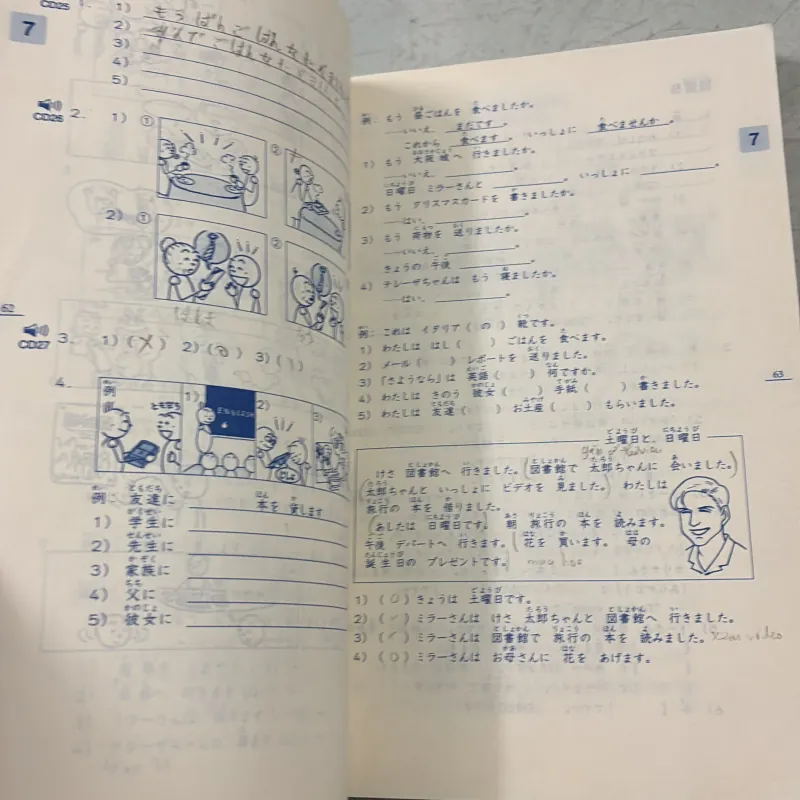 CD25
7
1) もう ばんごはんを たべましたか
2)
3)
4)
5)
CD26 2. 1) ① ②
2) ① ②
62
CD27 3. 1) (×) 2) ( ) 3) ( )
4. 例 1) 2) 3)
例: 友達に 本を 貸します
ともだち ほん か
1) 学生に
がくせい
2) 先生に
せんせい
3) 家族に
かぞく
4) 父に
ちち
5) 彼女に
かのじょ
7
例: もう 昼ごはんを 食べましたか。
……いいえ、まだです。
これから 食べます。いっしょに 食べませんか。
1) もう 大阪城へ 行きましたか。
……いいえ、 。
日曜日 ミラーさんと 。いっしょに 。
2) もう クリスマスカードを 書きましたか。
……はい、 。
3) もう 荷物を 送りましたか。
……いいえ、 。
きょうの 午後 。
4) テレーザちゃんは もう 寝ましたか。
……はい、 。
例: これは イタリア( の )靴です。
1) わたしは はし( )ごはんを 食べます。
2) メール( )レポートを 送りました。
3) 「さようなら」は 英語( )何ですか。
4) わたしは きのう 彼女( )手紙( )書きました。
5) わたしは 友達( )お土産( )もらいました。
63
土曜日と、日曜日
けさ 図書館へ 行きました。図書館で 太郎ちゃんに 会いました。
太郎ちゃんと いっしょに ビデオを 見ました。わたしは
旅行の 本を 借りました。
あしたは 日曜日です。朝 旅行の 本を 読みます。
午後 デパートへ 行きます。花を 買います。母の
誕生日の プレゼントです。 mua hoa
1) (○) きょうは 土曜日です。
2) ( ) ミラーさんは けさ 太郎ちゃんと 図書館へ 行きました。
3) ( ) ミラーさんは 図書館で 旅行の 本を 読みました。 xem video
4) (○) ミラーさんは お母さんに 花を あげます。